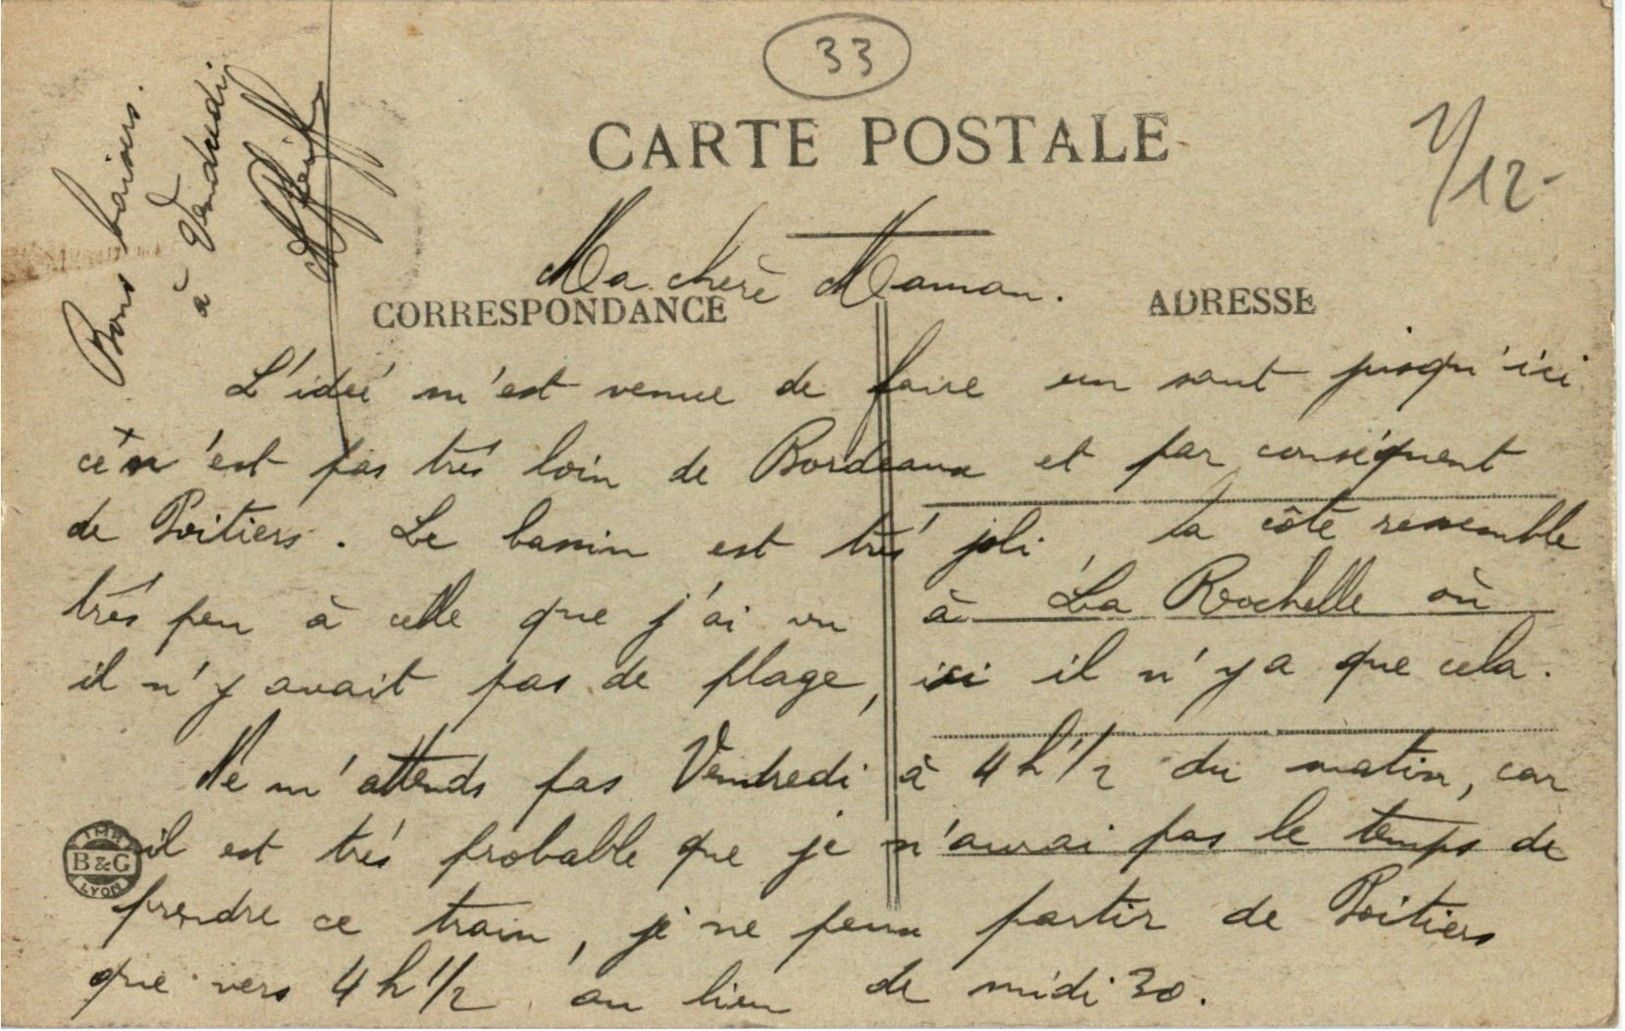 33
CARTE POSTALE
1/12-
Ma chère Maman.
CORRESPONDANCE
ADRESSE
L'idée m'est venue de faire un saut jusqu'ici
ce n'est pas très loin de Bordeaux et par conséquent
de Poitiers. Le bassin est très joli, la côte ressemble
très peu à celle que j'ai vu à La Rochelle où
il n'y avait pas de plage, ici il n'y a que cela.
Ne m'attends pas Vendredi à 4h 1/2 du matin, car
il est très probable que je n'aurai pas le temps de
prendre ce train, je ne peux partir de Poitiers
que vers 4h 1/2 au lieu de midi 30.
Bons baisers.
à Vendredi
IMP
B&G
LYON